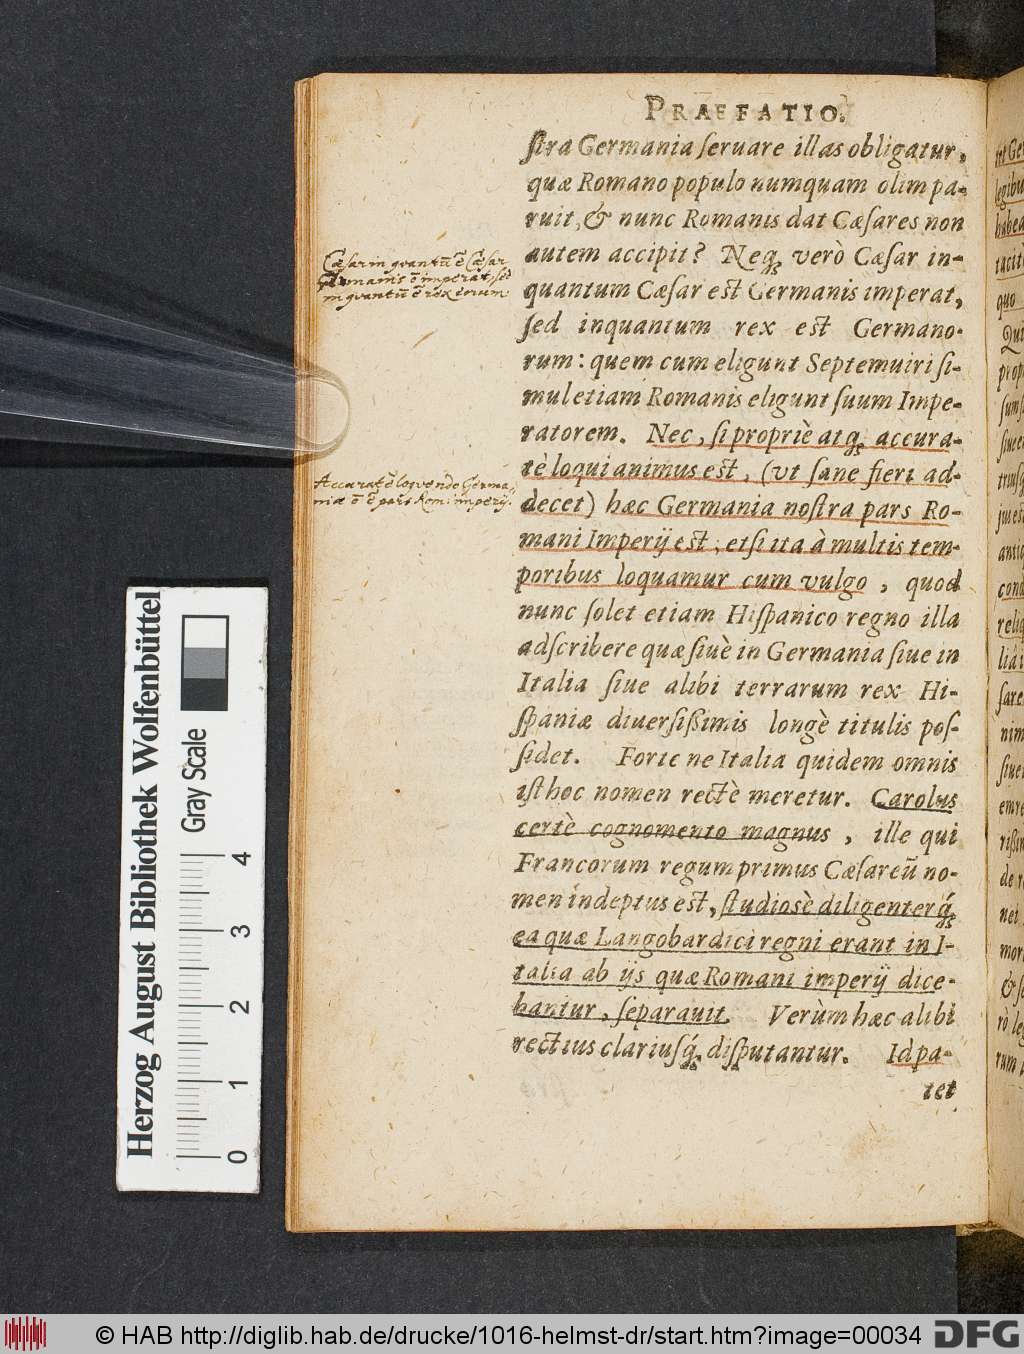 PRAEFATIO.
stra Germania seruare illas obligatur,
quæ Romano populo numquam olim pa-
ruit, & nunc Romanis dat Cæsares, non
autem accipit? Neq; verò Cæsar in-
quantum Cæsar est Germanis imperat,
sed inquantum rex est Germano-
rum: quem cum eligunt Septemuiri si-
mul etiam Romanis eligunt suum Impe-
ratorem. Nec, si propriè atq; accura-
tè loqui animus est, (vt sane fieri ad-
decet) hæc Germania nostra pars Ro-
mani Imperij est, etsi ita à multis tem-
poribus loquamur cum vulgo, quod
nunc solet etiam Hispanico regno illa
adscribere quæ siuè in Germania siue in
Italia siue alibi terrarum rex Hi-
spaniæ diuersissimis longè titulis pos-
sidet. Forte ne Italia quidem omnis
isthoc nomen rectè meretur. Carolus
certè cognomento magnus, ille qui
Francorum regum primus Cæsareũ no-
men indeptus est, studiosè diligenterq́;
ea quæ Langobardici regni erant in I-
talia ab ijs quæ Romani imperij dice-
bantur, separauit. Verùm hæc alibi
rectius clariusq́; disputantur. Id pa-
tet
Cæsar in qvantũ ẽ Cæsar
Germanis ẽ imperat, sed
in qvantũ ẽ rex eorum
Accuratè loqvendo Germa-
niæ ẽ ẽ pars Rom: imperij.
Herzog August Bibliothek Wolfenbüttel
Gray Scale
0 1 2 3 4
© HAB http://diglib.hab.de/drucke/1016-helmst-dr/start.htm?image=00034
DFG